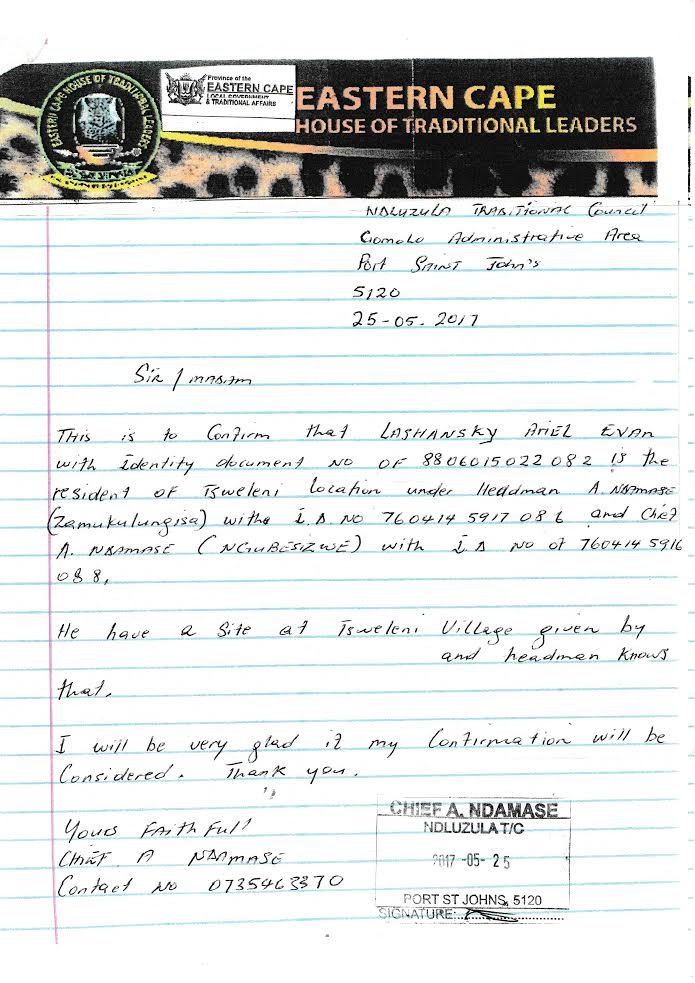 EASTERN CAPE HOUSE OF TRADITIONAL LEADERS
Province of the
EASTERN CAPE
LOCAL GOVERNMENT
& TRADITIONAL AFFAIRS
EASTERN CAPE
HOUSE OF TRADITIONAL LEADERS
NDLUZULA TRADITIONAL Council
Gomolo Administrative Area
Port SAINT John's
5120
25-05-2017
Sir / MADAM
THis is to Confirm that LASHANSKY ARIEL EVAN
with Identity document NO OF 8806015022082 is the
resident OF Tsweleni Location under Headman A. NDAMASE
(Zamukulungisa) with I.D NO 760414 5917 086 and Chief
A. NDAMASE (NGUBESIZWE) with I.D NO of 760414 5916
088,
He have a Site at Tsweleni Village given by
and headman knows
that.
I will be very glad if my Confirmation will be
Considered. Thank you.
Yours FaithFull
CHIEF A NDAMASE
Contact NO 0735463370
CHIEF A. NDAMASE
NDLUZULA T/C
2017 -05- 25
PORT ST JOHNS, 5120
SIGNATURE: